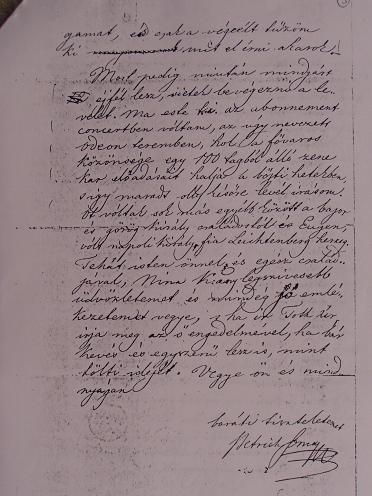 gamat, és ezt a végczélt tűzöm
ki mit elérni akarok.
Most pedig miután mindjárt
éjfél lesz, sietek bevégezni a le-
velet. Ma este az abonnement
concertben voltam, az úgy nevezett
odeon teremben, hol a főváros
közönsége egy 100 tagból álló zene
kar előadását hallja a böjti hetekben,
s így maradt oly későre levél írásom.
Ott voltak sok más egyéb között a bajor
és görög király családostól és Eugen,
volt nápoli király fia Leuchtenberg herczeg.
Tehát isten önnel, és egész család-
jával, Nina legszivesebb
üdvözletemet és mindég jó emlé-
kezetemet vegye, s he ír Told
írja meg az ő engedelmével, ha bár
kevés és egyszerű lesz is, mint
tölti idejét. Vegye ön és mind-
nyáján
baráti tiszteletemet
Petrich